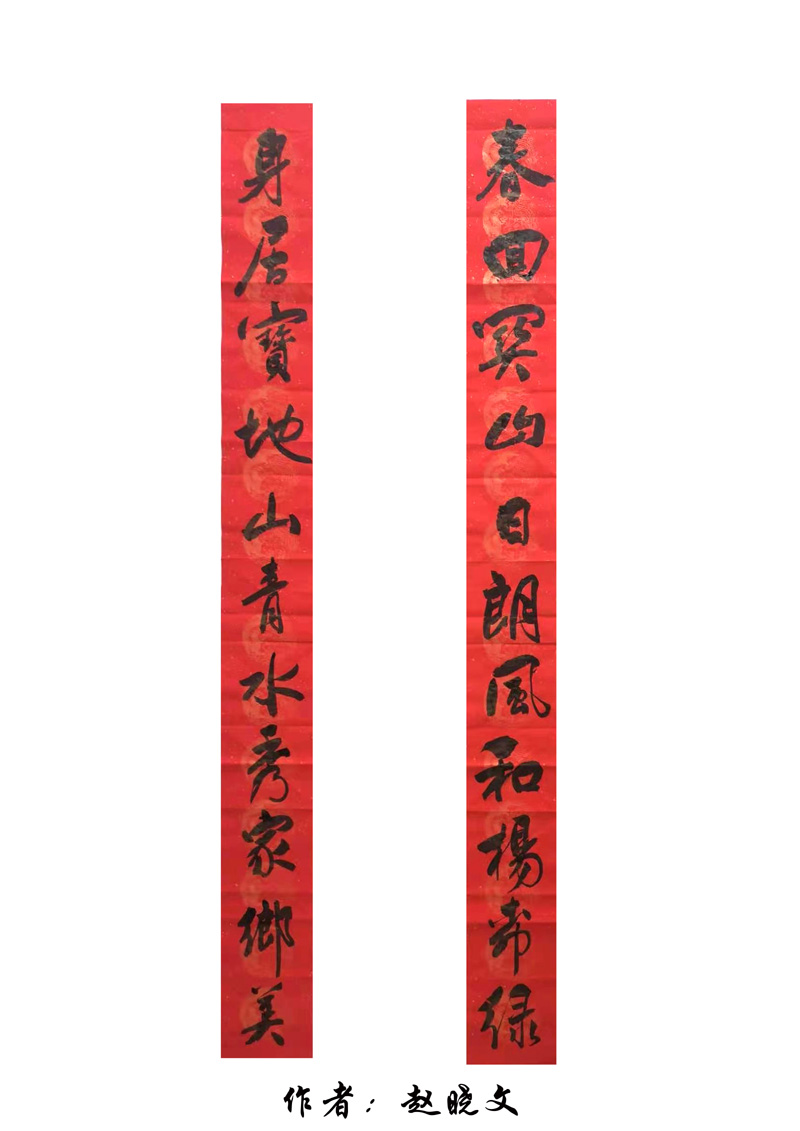 春回山日朗風和楊绿
身居寶地山青水秀家鄉美
作者：赵晓文